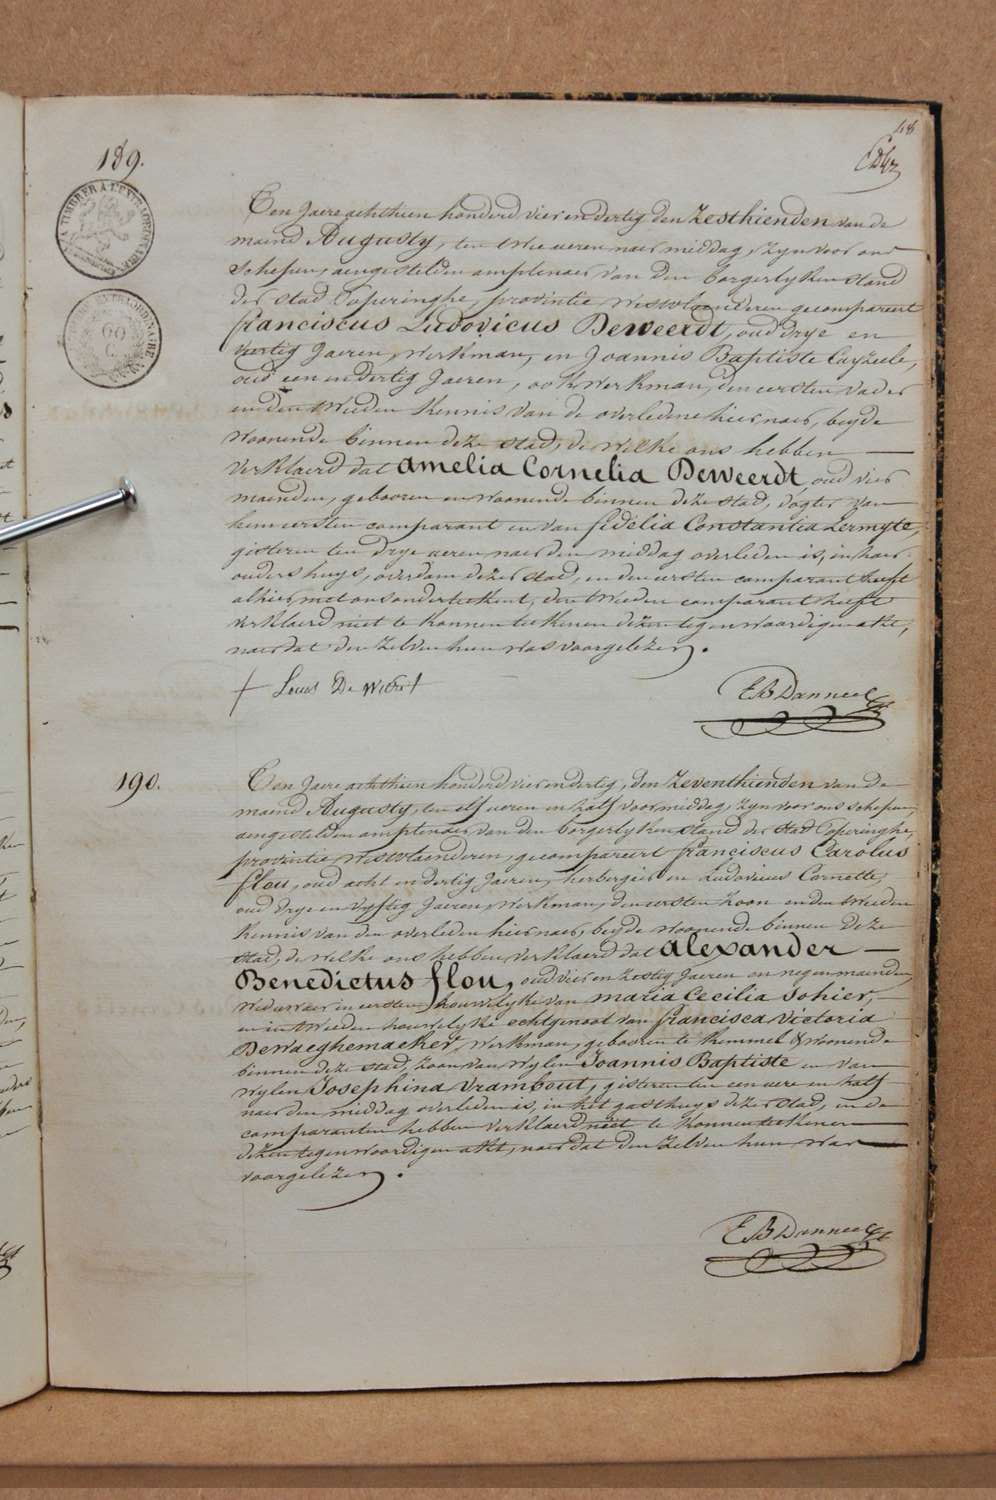 118
189.
A TIMBRER A L'EXTRAORDINAIRE
EXTRAORDINAIRE
60
C.
Ten Jaere achthien honderd vier en dertig den Zesthienden van de
maend Augusty, ten twee ueren naer middag, zyn voor ons
Schepen, aengestelden amptenaer van den borgerlyken stand
der stad Poperinghe, provintie westvlaenderen gecompareert
franciscus Ludovicus Deweerdt, oud drye en
veertig Jaeren, werkman, en Joannis Baptiste Cayzeele,
oud een en dertig Jaeren, ook werkman, den eersten vader
en den tweeden kennis van de overledene hier naer, beyde
woonende binnen deze stad, de welke ons hebben
verklaerd dat amelia Cornelia Deweerdt, oud vier
maenden, gebooren en woonende binnen deze stad, dogter van
hem eersten comparant en van fidelia Constantia Lermyte,
gisteren ten drye ueren naer den middag overleden is, in haer
ouders huys, overdam dezer stad, en den eersten comparant heeft
alhier met ons onderteekent, den tweeden comparant heeft
verklaerd niet te konnen teekenen dezen tegenwoordigen akt,
naer dat den zelven hun was voorgelezen.
Louis De
E B Danneel
190.
Ten Jaere achthien honderd vier en dertig, den Zeventhienden van de
maend Augusty, ten elf ueren en half voormiddag, zyn voor ons schepen,
aengestelden amptenaer van den borgerlyken stand der stad Poperinghe,
provintie westvlaenderen, gecompareert franciscus Carolus
flou, oud acht en dertig Jaeren, herbergier en Ludovicus Cornette,
oud drye en vyftig Jaeren, werkman, den eersten zoon en den tweeden
kennis van den overleden hier naer, beyde woonende binnen deze
stad, de welke ons hebben verklaerd dat alexander
Benedictus flou, oud vier en zestig Jaeren en negen maenden,
weduwaer in eersten houwelyke van maria Cecilia Sohier,
en in tweeden houwelyke echtgenoot van francisca victoria
Dewaeghemaeker, werkman, gebooren te kemmel & woonende
binnen deze stad, zoon van wylen Joannis Baptiste en van
wylen Josephina Vrambout, gisteren ten een uere en half
naer den middag overleden is, in het gasthuys dezer stad, en de
comparanten hebben verklaerd niet te konnen teekenen
dezen tegenwoordigen akt, naer dat den zelven hun was
voorgelezen.
E B Danneel